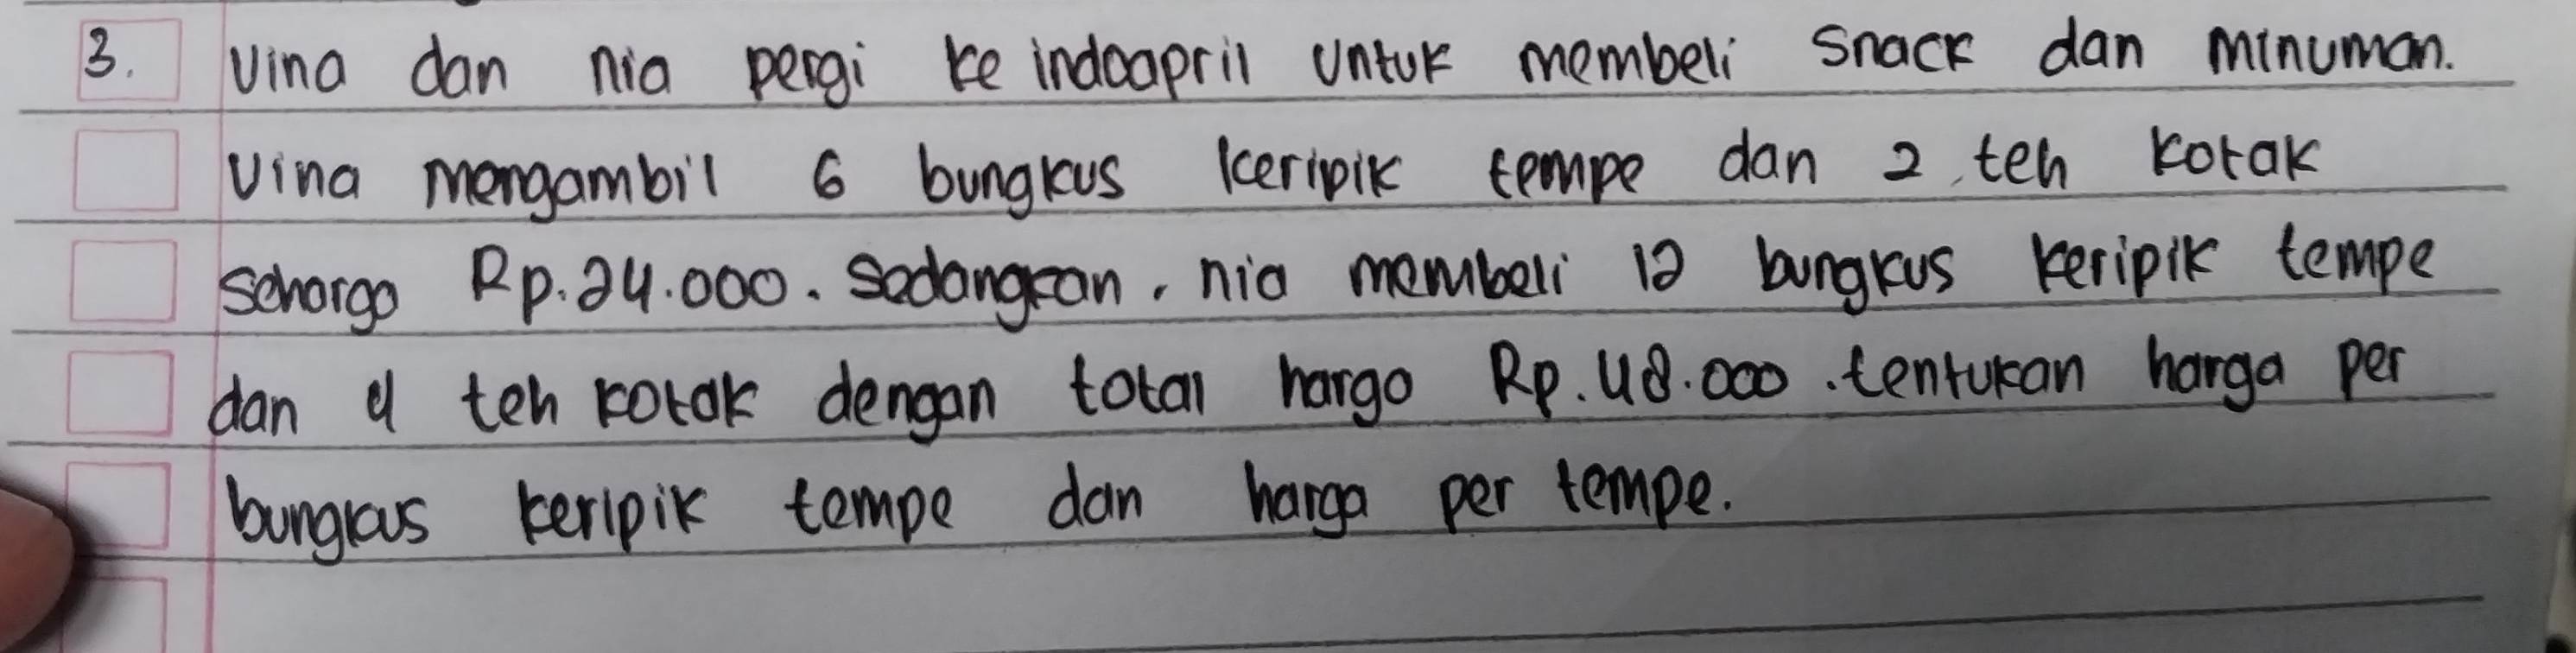 3. Vina dan nia pergi ke indoapril untuk membeli snack dan minuman.
Vina mengambil 6 bungkus keripik tempe dan 2 teh kotak
seharga Rp.24.000. Sedangkan, nia membeli 12 bungkus keripik tempe
dan 4 teh kotak dengan total harga Rp.48.000. tentukan harga per
bungkus keripik tempe dan harga per tempe.